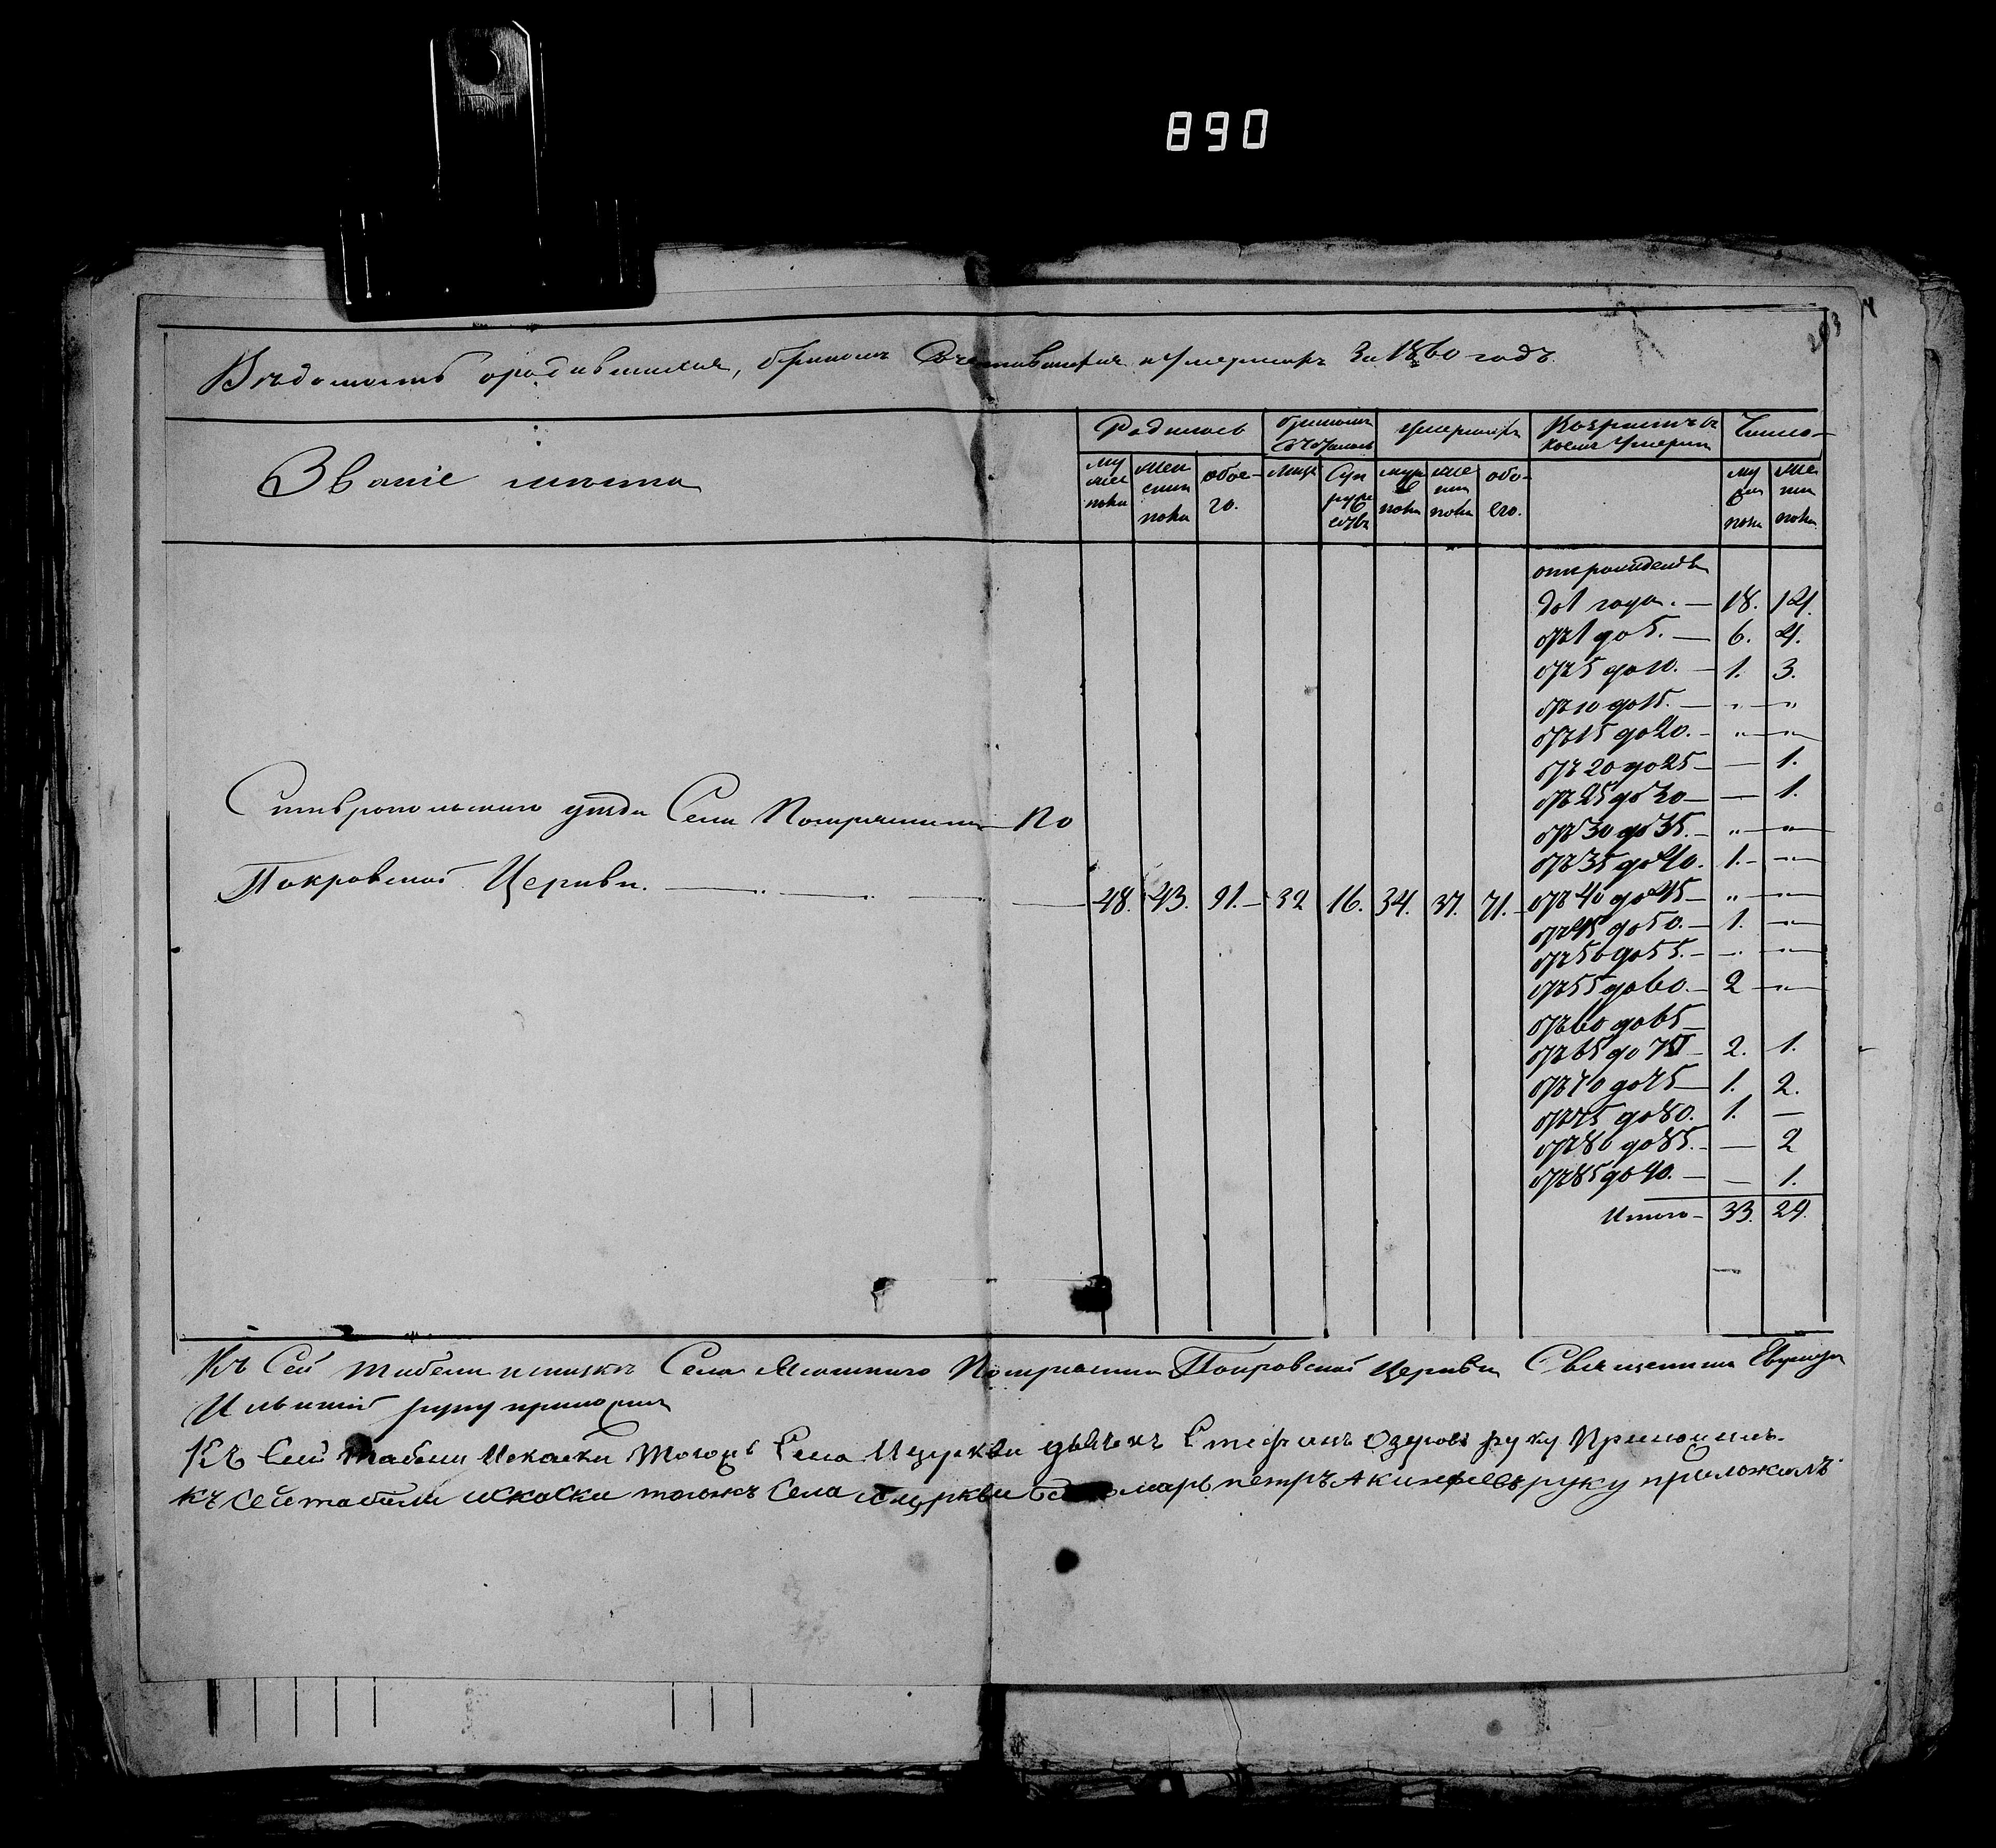 890
Вѣдомость о родившихся, бракомъ сочетавшихся и умершихъ За 1860 годъ.
Званіе мѣста
Родилось
бракомъ сочеталось
умершихъ
Возрастъ въ коемъ Умерли
Число
му жес пола
Жен скаго пола
обое- го.
Лицъ
Суп руже ствъ
муж пола
же пола
обо- его.
му пола
Же пола
Ставропольскаго уѣзда Села по
Покровской Церкви.
48. 43. 91. 32 16. 34. 37. 71.
отъ рожденія
до 1 года. 18. 14.
отъ 1 до 5. 6. 4.
отъ 5 до 10. 1. 3.
отъ 10 до 15. — „ — „
отъ 15 до 20. — „ — „
отъ 20 до 25 — — 1.
отъ 25 до 30 — — 1.
отъ 30 до 35. — „ — „
отъ 35 до 40. 1. — „
отъ 40 до 45 — „ — „
отъ 45 до 50. — 1. — „
отъ 50 до 55. — „ — „
отъ 55 до 60. — 2 — „
отъ 60 до 65 —
отъ 65 до 70 — 2. 1.
отъ 70 до 75 — 1. 2.
отъ 75 до 80. 1. —
отъ 80 до 85. — — 2
отъ 85 до 90. — — 1.
Итого — 33. 29.
Къ Сей табели Села Покровской Церкви Священникъ
Ильинскій руку приложилъ
Къ Сей табели Исказки Тогожъ Села Ицеркви дьячекъ Стефанъ Озеровъ руку Приложилъ.
къ сей табели исказки тогожъ села ицеркви поно марь петръ Акинфиевъ руку приложилъ